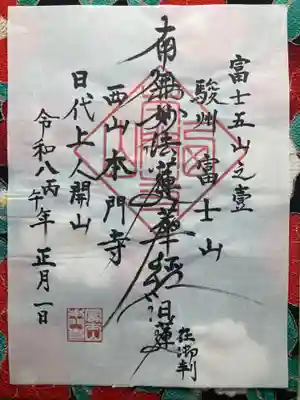 富士五山之壹
駿州富士山
南無妙法蓮華経 日蓮
在御判
西山本門寺
日代上人開山
令和八丙午年 正月一日